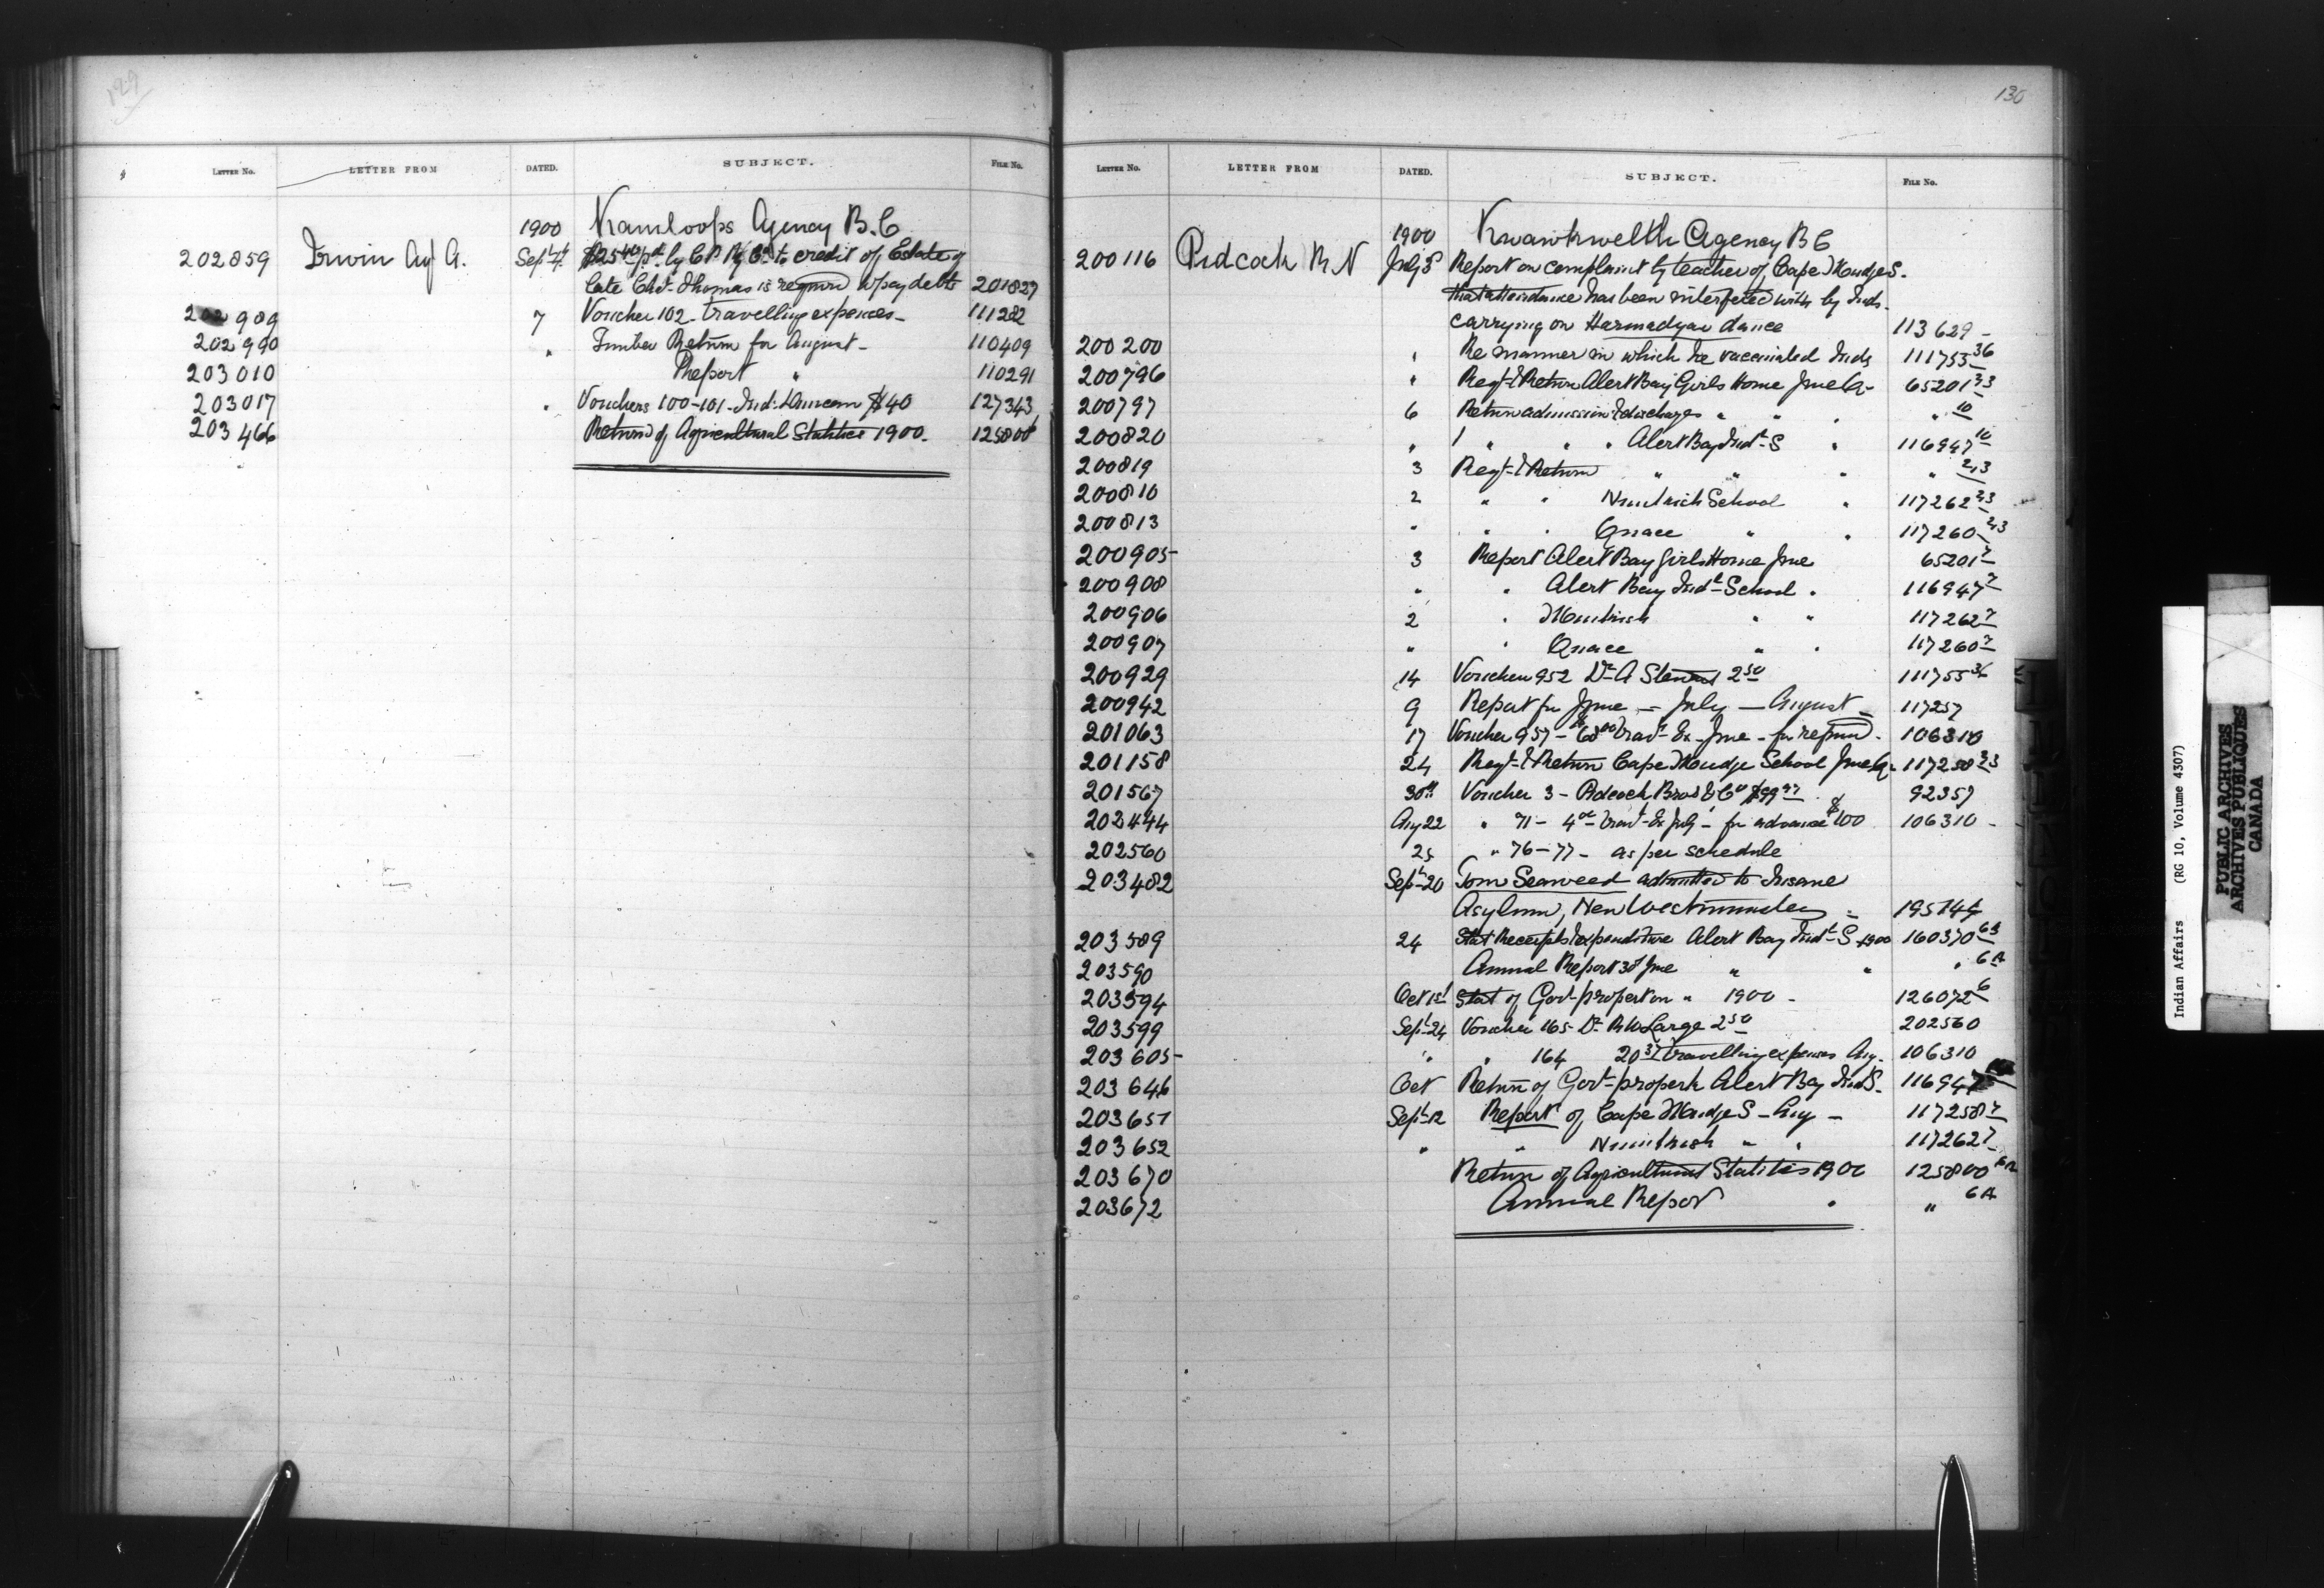 129
LETTER No. LETTER FROM DATED. SUBJECT. FILE No.
1900 Kamloops Agency B.C
202859 Irwin Agt A. Sept 4 by C.P. Ry Co to credit of Estate of
late Chf. Thomas is required to pay debts 201827
202989 7 Voucher 102 - travelling expenses - 111282
202990 " Timber Return for August - 110409
203010 Report " 110291
203017 " Vouchers 100-101 - Ind: $40 127343
203466 Return of Agricultural Statistics 1900. 125800
130
LETTER No. LETTER FROM DATED. SUBJECT. FILE No.
1900 Kwawkwelth Agency B C
200116 Pidcock R N July 5 Report on complaint by teacher of Cape Mudge S.
that attendance has been interfered with by Inds.
carrying on dance 113629 -
200200 " Re manner in which he vaccinated Inds 111755 36
200796 " Regt & Return Alert Bay Girls Home June Qr 65201 23
200797 6 Return admission & discharges " " " " 10
200820 " " " " Alert Bay Indl S " 116947 10
200819 3 Regt & Return " " " " 2,3
200810 2 " " Nimkish School " 117262 23
200813 " " " Quaee " " 117260 23
200905 3 Report Alert Bay Girls Home June 65201 7
200908 " " Alert Bay Indl School " 116947 7
200906 2 " Nimkish " " 117262 7
200907 " " Quaee " " 117260 7
200929 14 Voucher 952 Dr A Stewart 2 50 111755
200942 9 Report for June - July - August - 117257
201063 17 Voucher 957 - $68 00 Trav. Ex - June - for refund - 106310
201158 24 Regt & Return Cape Mudge School June Qr 117258 23
201567 30th Voucher 3 - Pidcock Bros & Co $99 97 92357
202444 Aug 22 " 71 - 4 Trav. Ex July - for advance $100 106310 -
202560 25 " 76-77 - as per schedule
203482 Sept 20 Tom Seaweed admitted to Insane
Asylum, New Westminster - 195744
203589 24 Stat Receipts & expenditure Alert Bay Indl S 1900 160370 63
203590 Annual Report 30 June " " " 6A
203594 Oct 1st Stat of Govt property on " 1900 - 126072 6
203599 Sept 24 Voucher 165 - Dr R W Large 2 50 202560
203605 " " 164 20 37 travelling expenses Aug. 106310
203646 Oct Return of Govt property Alert Bay Ind S. 116947
203651 Sept 12 Report of Cape Mudge S - Aug - 117258 7
203652 " " Nimkish " " 117262 7
203670 Return of Agricultural Statistics 1900 125800
203672 Annual Report " " 6A
Indian Affairs (RG 10, Volume 4307)
PUBLIC ARCHIVES
ARCHIVES PUBLIQUES
CANADA